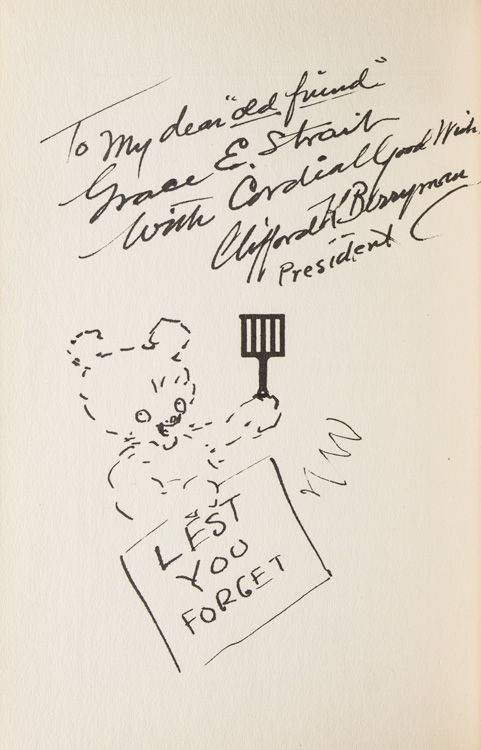 To My dear "old friend"
Grace E. Strait
With Cordial Good Wish
Clifford K. Berryman
President
LEST
YOU
FORGET